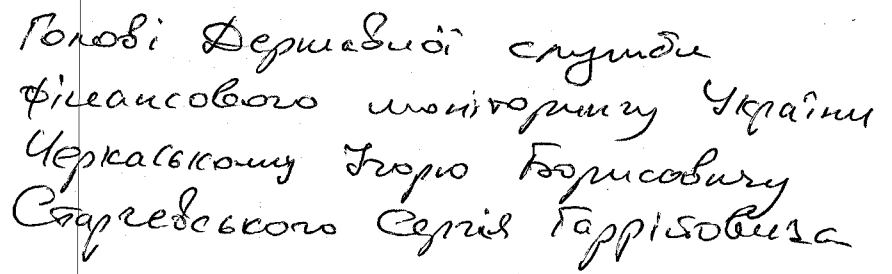 Голові Державної служби
фінансового моніторингу України
Черкаському Ігорю Борисовичу
Старчевського Сергія Гаррійовича